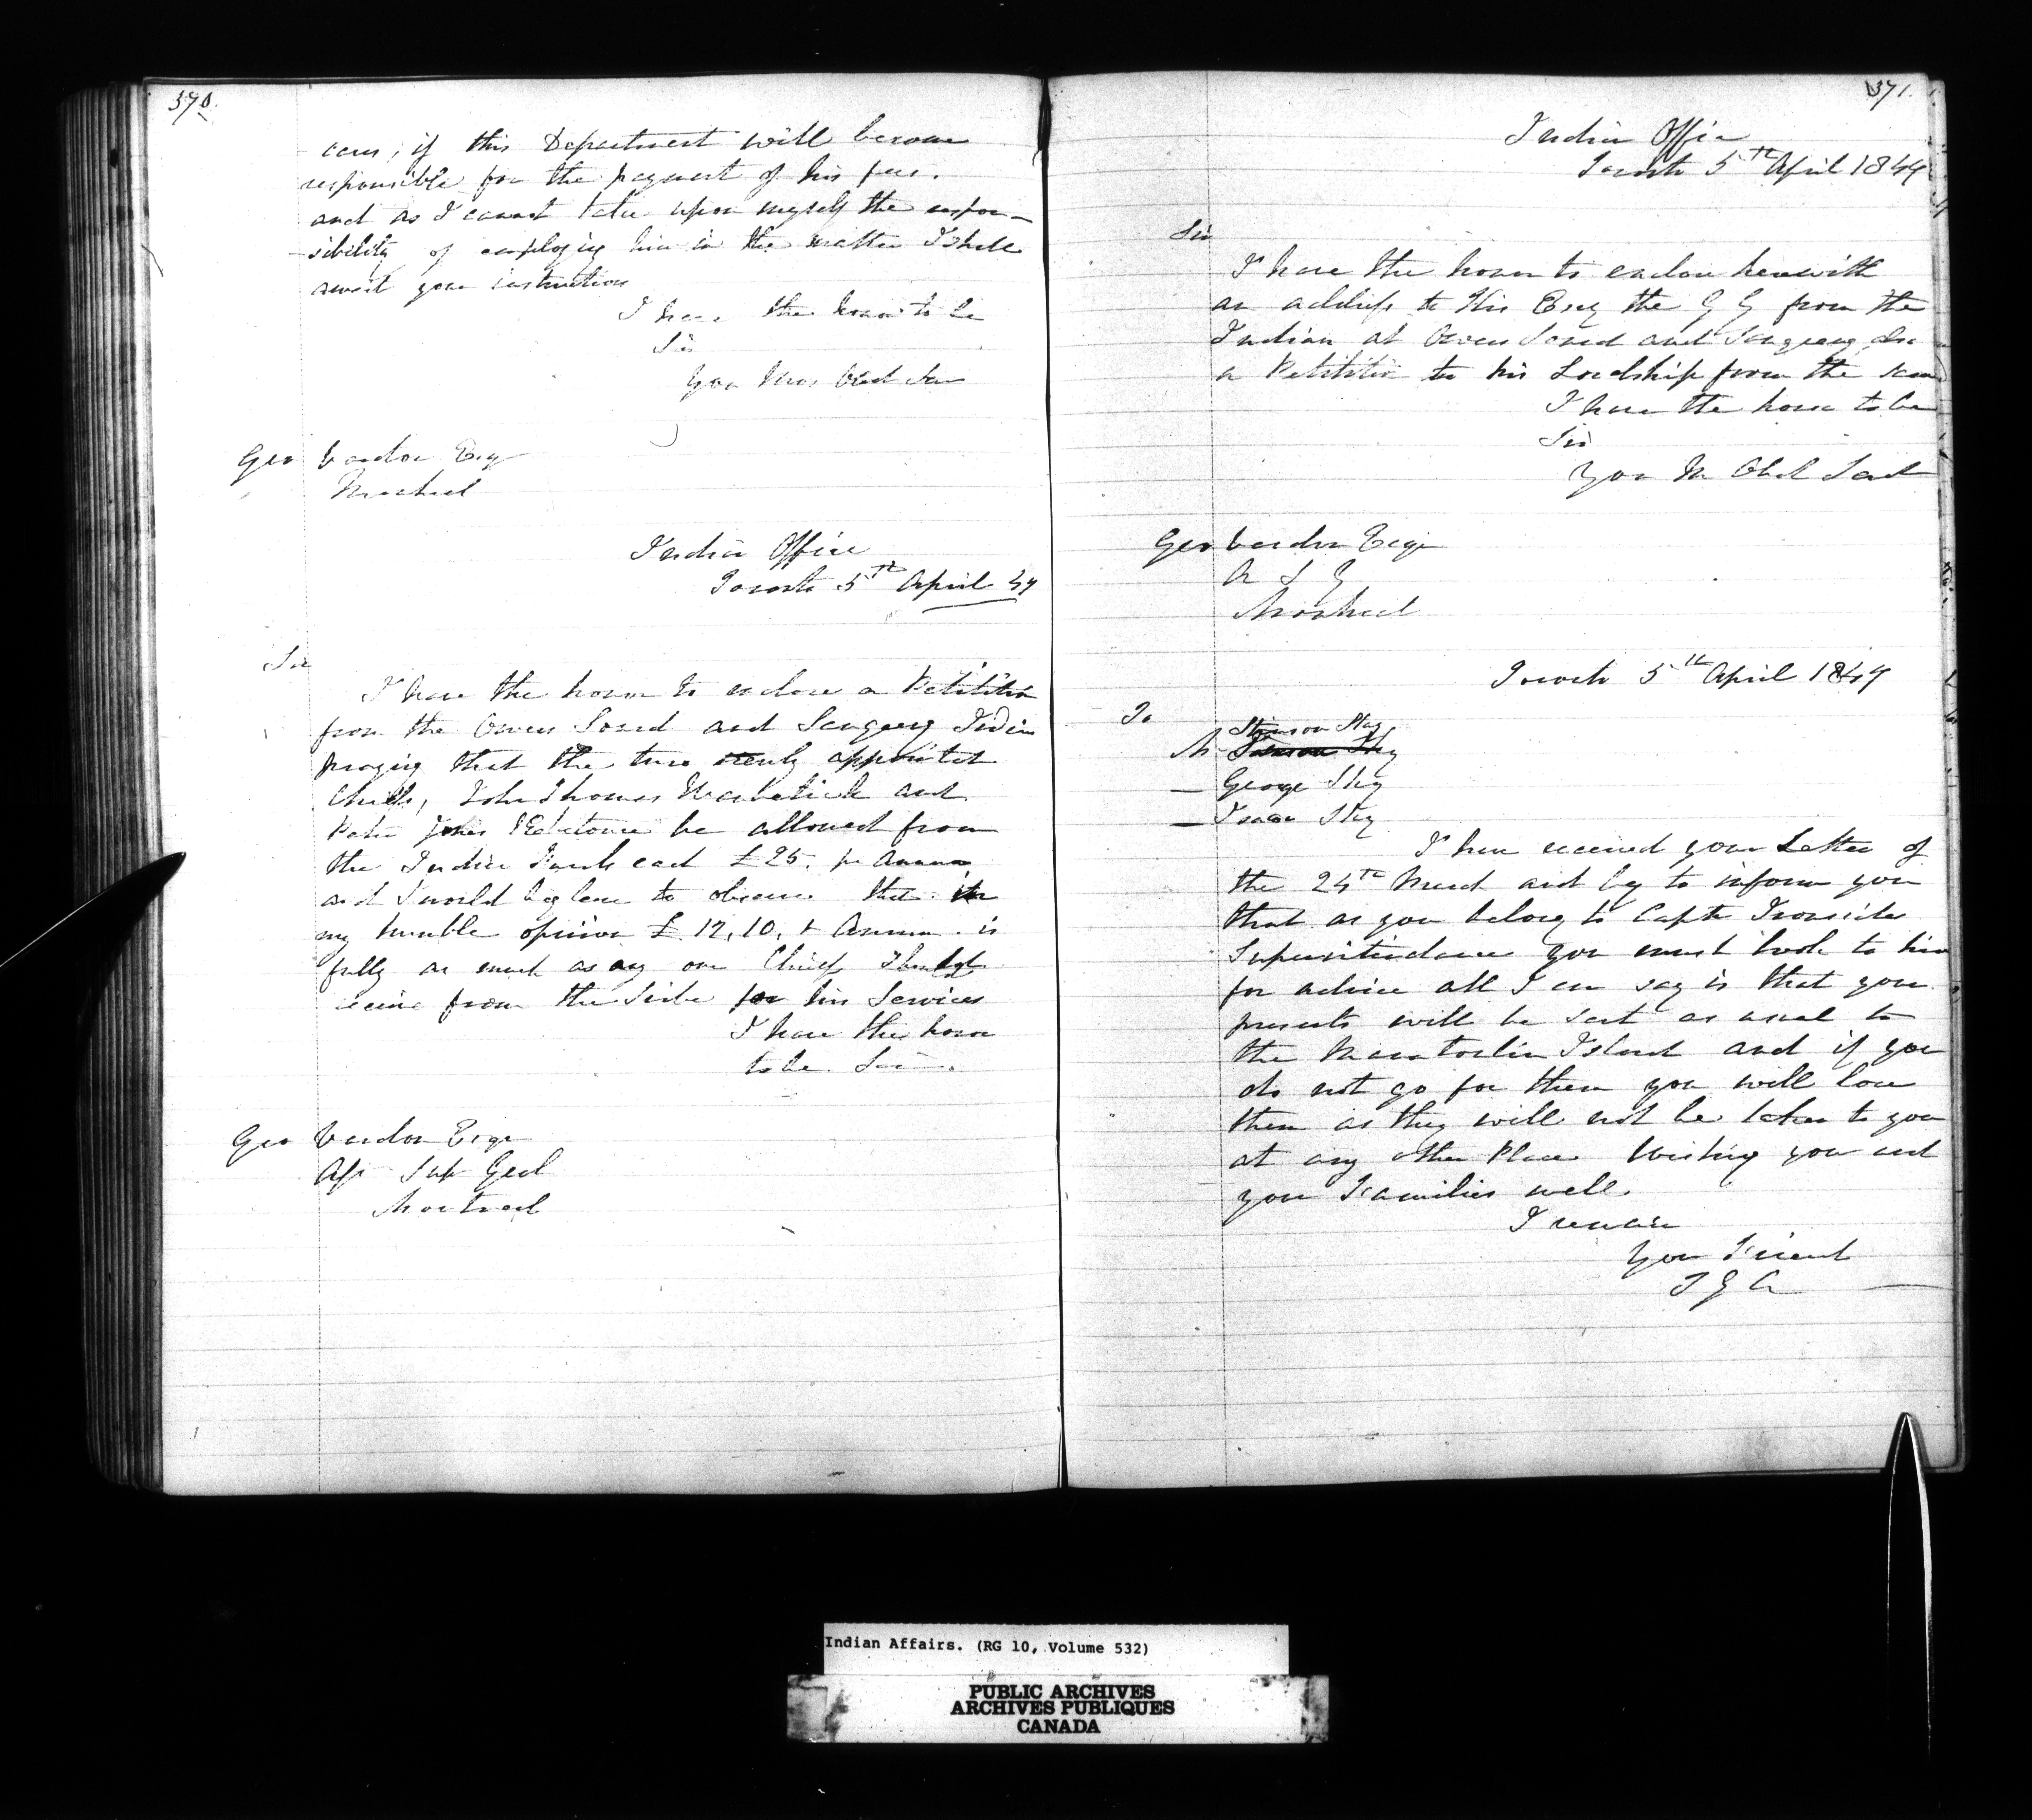 370.
case, if this Department will become
responsible for the payment of his fees.
and as I cannot take upon myself the respon-
sibility of employing him in the matter I shall
await your instructions
I have the honor to be
Sir
Your Mos Obed Ser
Geo Vardon Esq
Montreal
Indian Office
Toronto 5th April 49
Sir
I have the honor to enclose a Petitition
from the Owen Sound and Saugeeng Indian
praying that the two newly appointed
Chiefs, John Thomas and
Peter Jones be allowed from
the Indian Funds each £25. per Annum
and I would beg leave to observe that in
my humble opinion £.12,10, Annum is
fully as much as any one Chief should
receive from the tribe for his Services
I have the honor
to be Sir
Geo Vardon Esqr
Ast Sup Genl
Montreal
371.
Indian Office
Toronto 5th April 1849
Sir
I have the honor to enclose herewith
an address to His Excy the G G from the
Indian at Owen Sound and Saugeeng also
a Petitition to his Lordship from the same
I have the honor to be
Sir
Your M Obed Servt
Geo Vardon Esqr
A S G
Montreal
Toronto 5th April 1849
To
Stinson Sky
George Sky
Isaac Sky
I have received your Letter of
the 24th March and beg to inform you
that as you belong to Capt Ironsides
Superintendance you must look to him
for advice all I can say is that your
presents will be sent as usual to
the Manatoulin Island and if you
do not go for them you will lose
them as they will not be taken to you
at any other Place Wishing you and
your Families well.
I remain
Your Friend
T G A
Indian Affairs. (RG 10, Volume 532)
PUBLIC ARCHIVES
ARCHIVES PUBLIQUES
CANADA